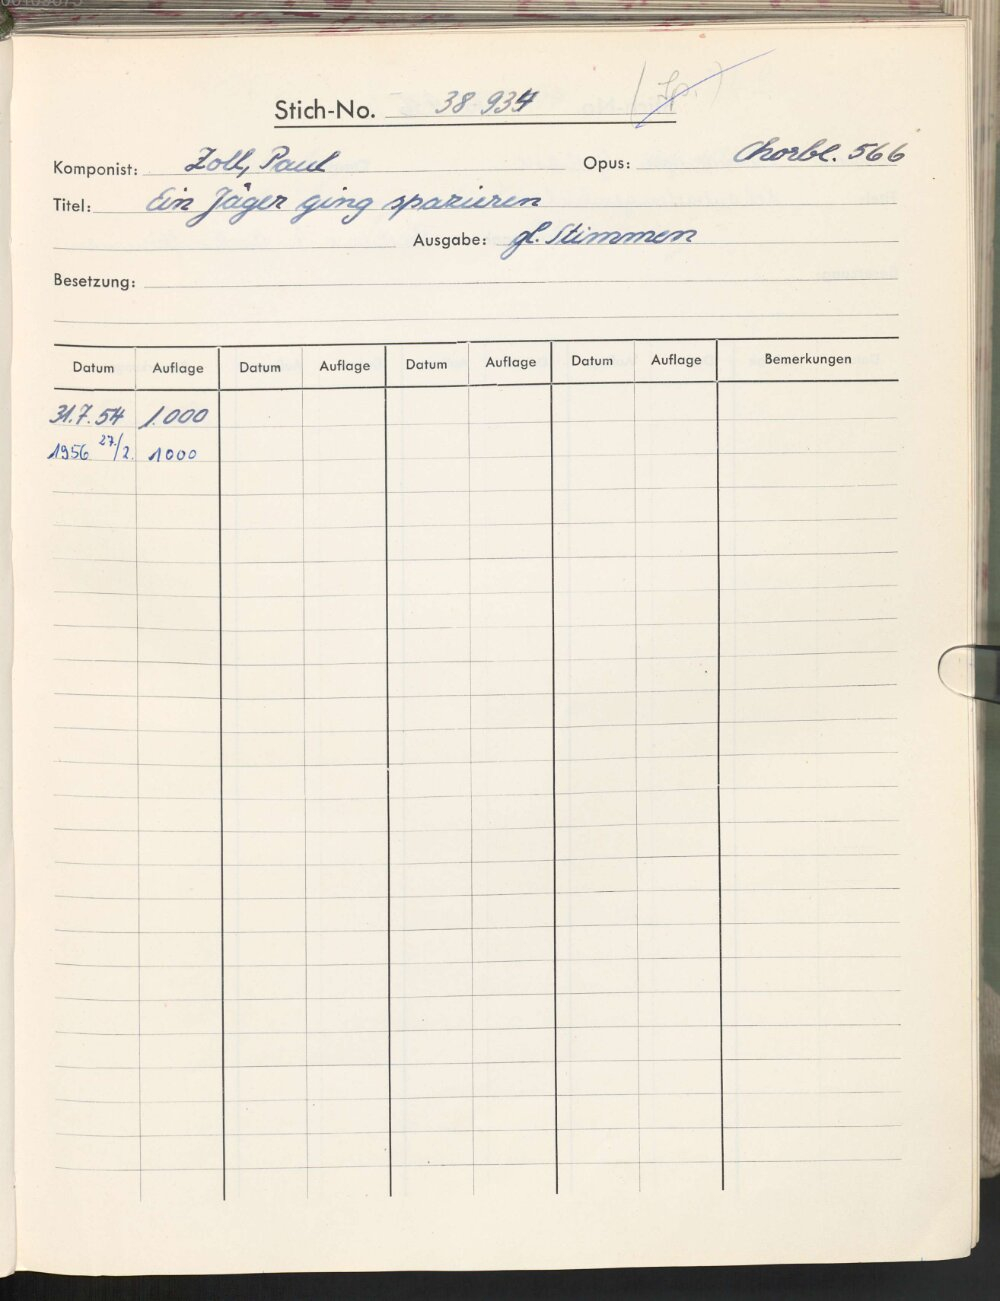 Stich-No. 38 934
Komponist: Zoll, Paul Opus: Chorbl. 566
Titel: Ein Jäger ging spazieren
Ausgabe: gl. Stimmen
Besetzung:
Datum Auflage Datum Auflage Datum Auflage Datum Auflage Bemerkungen
31.7.54 1.000
1956 27./2. 1000